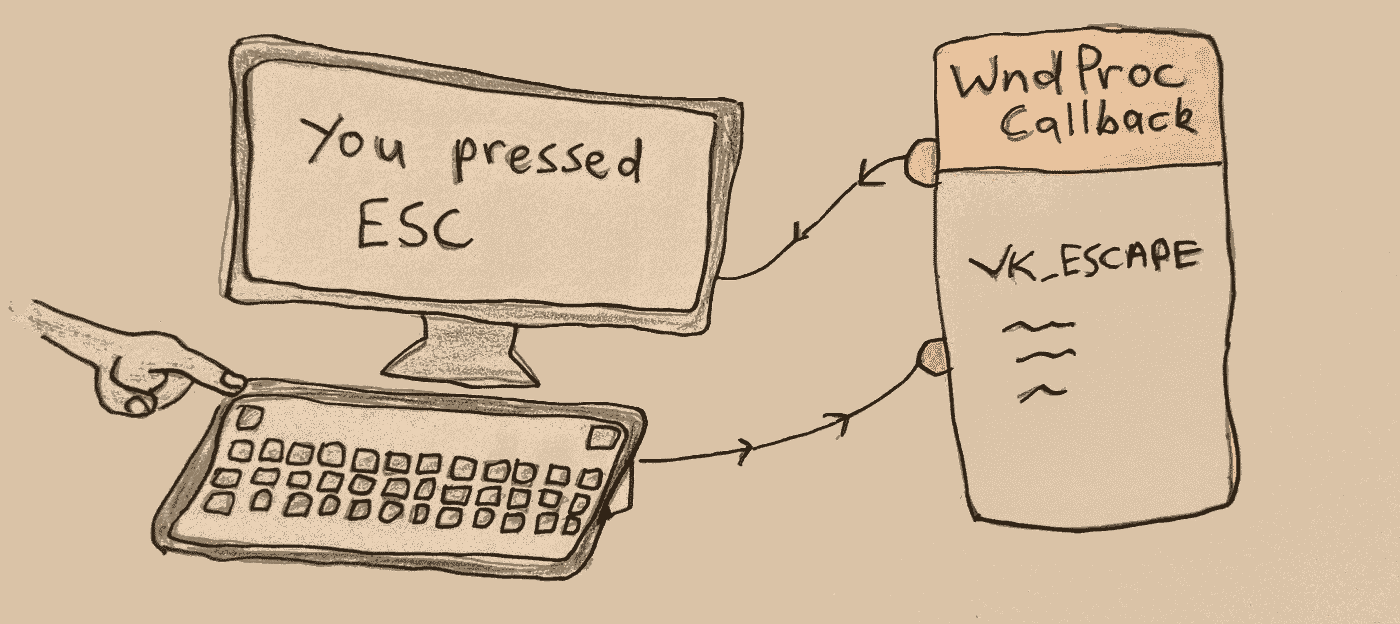 You pressed
ESC
WndProc
Callback
VK_ESCAPE